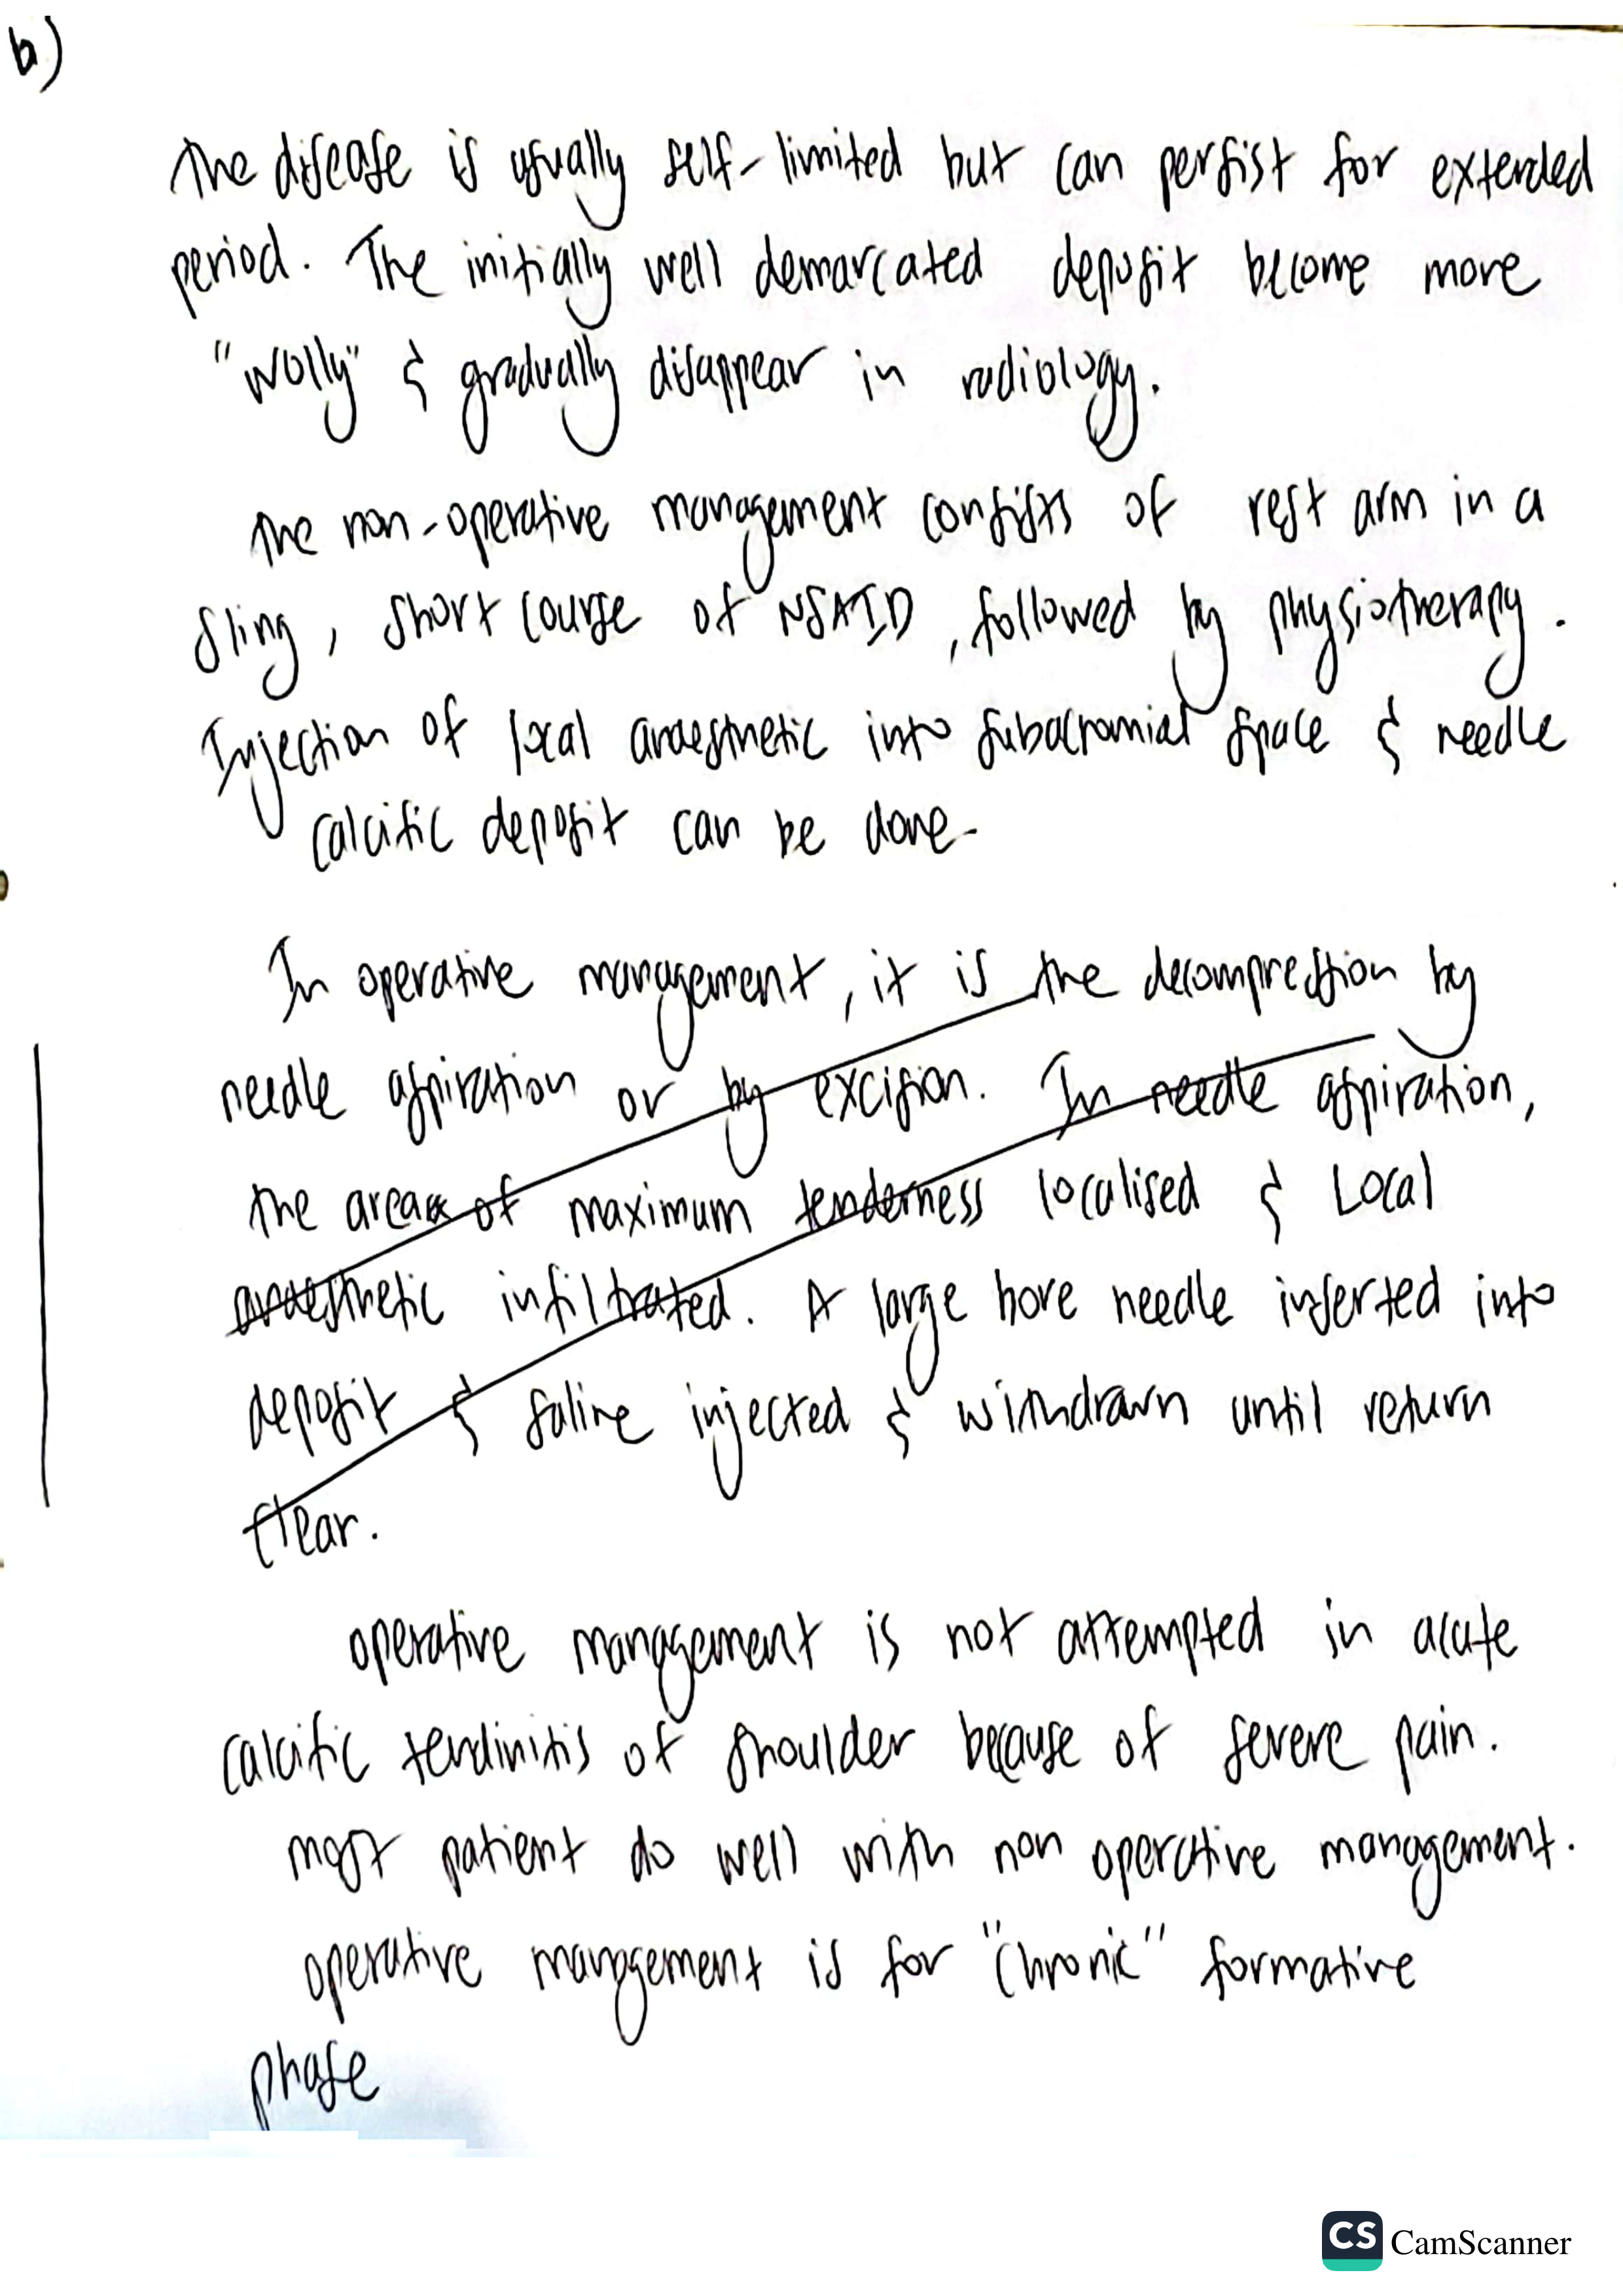 b)
The disease is usually self-limited but can persist for extended
period. The initially well demarcated deposit become more
"wolly" & gradually disappear in radiology.
The non-operative management consists of rest arm in a
sling, short course of NSAID, followed by physiotherapy.
Injection of local anaesthetic into subacromial space & needle
calcific deposit can be done.
In operative management, it is the decompression by
needle aspiration or by excision. In needle aspiration,
the area of maximum tenderness localised & Local
anaesthetic infiltrated. A large bore needle inserted into
deposit & saline injected & withdrawn until return
clear.
operative management is not attempted in acute
calcific tendinitis of shoulder because of severe pain.
most patient do well with non operative management.
operative management is for "chronic" formative
phase
CS CamScanner